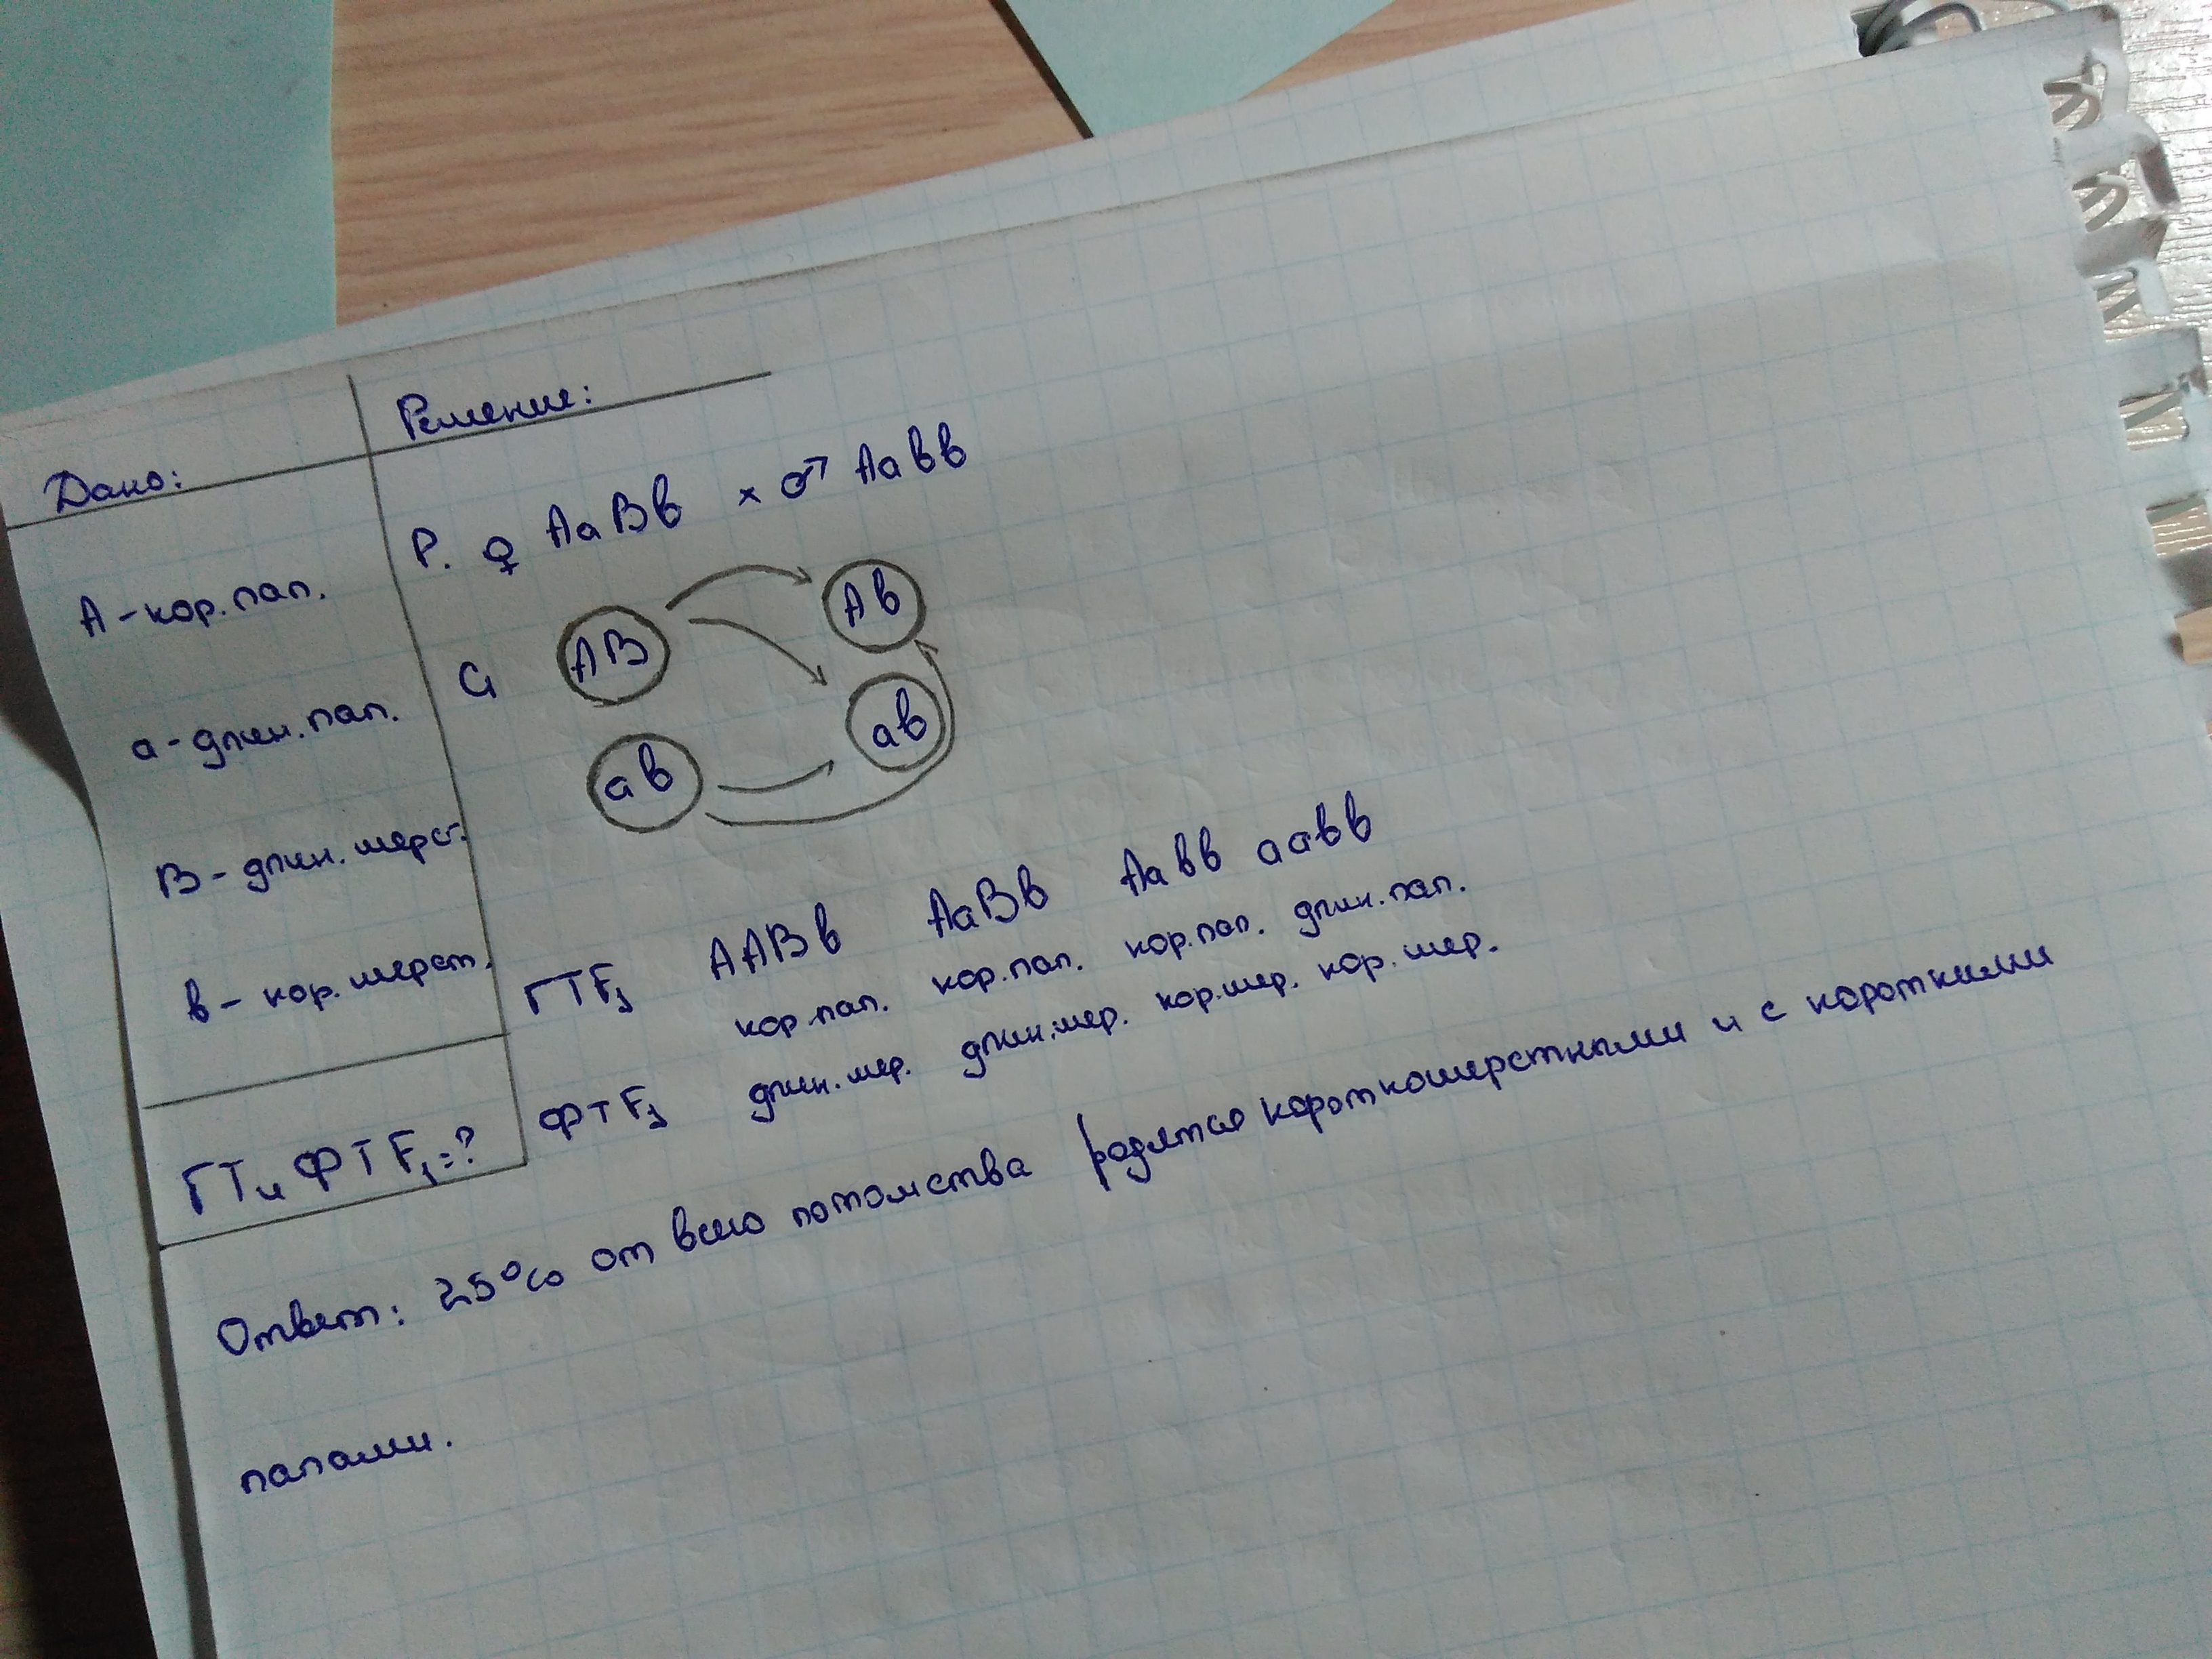 Дано:
А - кор. лап.
а - длин. лап.
В - длин. шерст.
в - кор. шерст.
ГТ и ФТ F₁ = ?
Решение:
P. ♀ АаВв × ♂ Аавв
G АВ Ав
ав ав
ГТ F₁ ААВв АаВв Аавв аавв
кор. лап. кор. лап. кор. лап. длин. лап.
ФТ F₁ длин. шер. длин. шер. кор. шер. кор. шер.
Ответ: 25% от всего потомства родятся короткошерстными и с короткими
лапами.